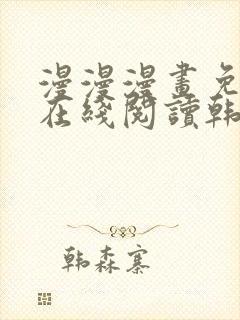 漫漫漫畫免
在綫閱讀韩
韩森寨